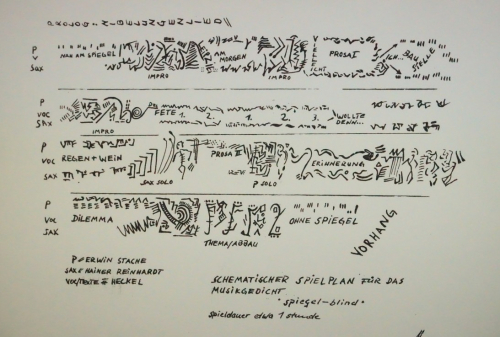 PROLOG: NIBELUNGENLIED //
P
V NAH AM SPIEGEL AM MORGEN VIELLEICHT PROSA I ICH... BAUSTELLE
SAX
IMPRO IMPRO
P
VOC FETE 1. 2. 1. 2. 3. WOLLTE DENN...
SAX
IMPRO
P PROSA II
VOC REGEN + WEIN ERINNERUNG
SAX
SAX SOLO P SOLO
P
VOC DILEMMA OHNE SPIEGEL
SAK
THEMA/ABBAU
VORHANG
P = ERWIN STACHE
SAX = HAINER REINHARDT
VOC/TEXTE = HECKEL
SCHEMATISCHER SPIELPLAN FÜR DAS
MUSIKGEDICHT
"spiegel-blind"
spieldauer etwa 1 stunde